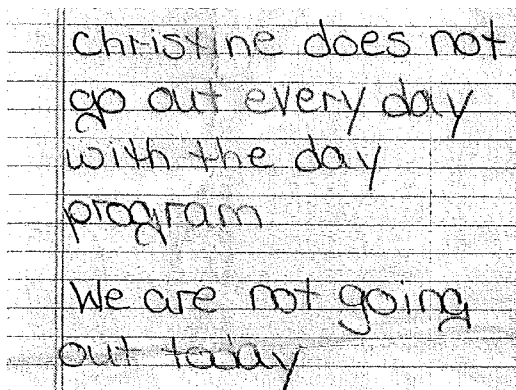 christine does not
go out every day
with the day
program
We are not going
out today